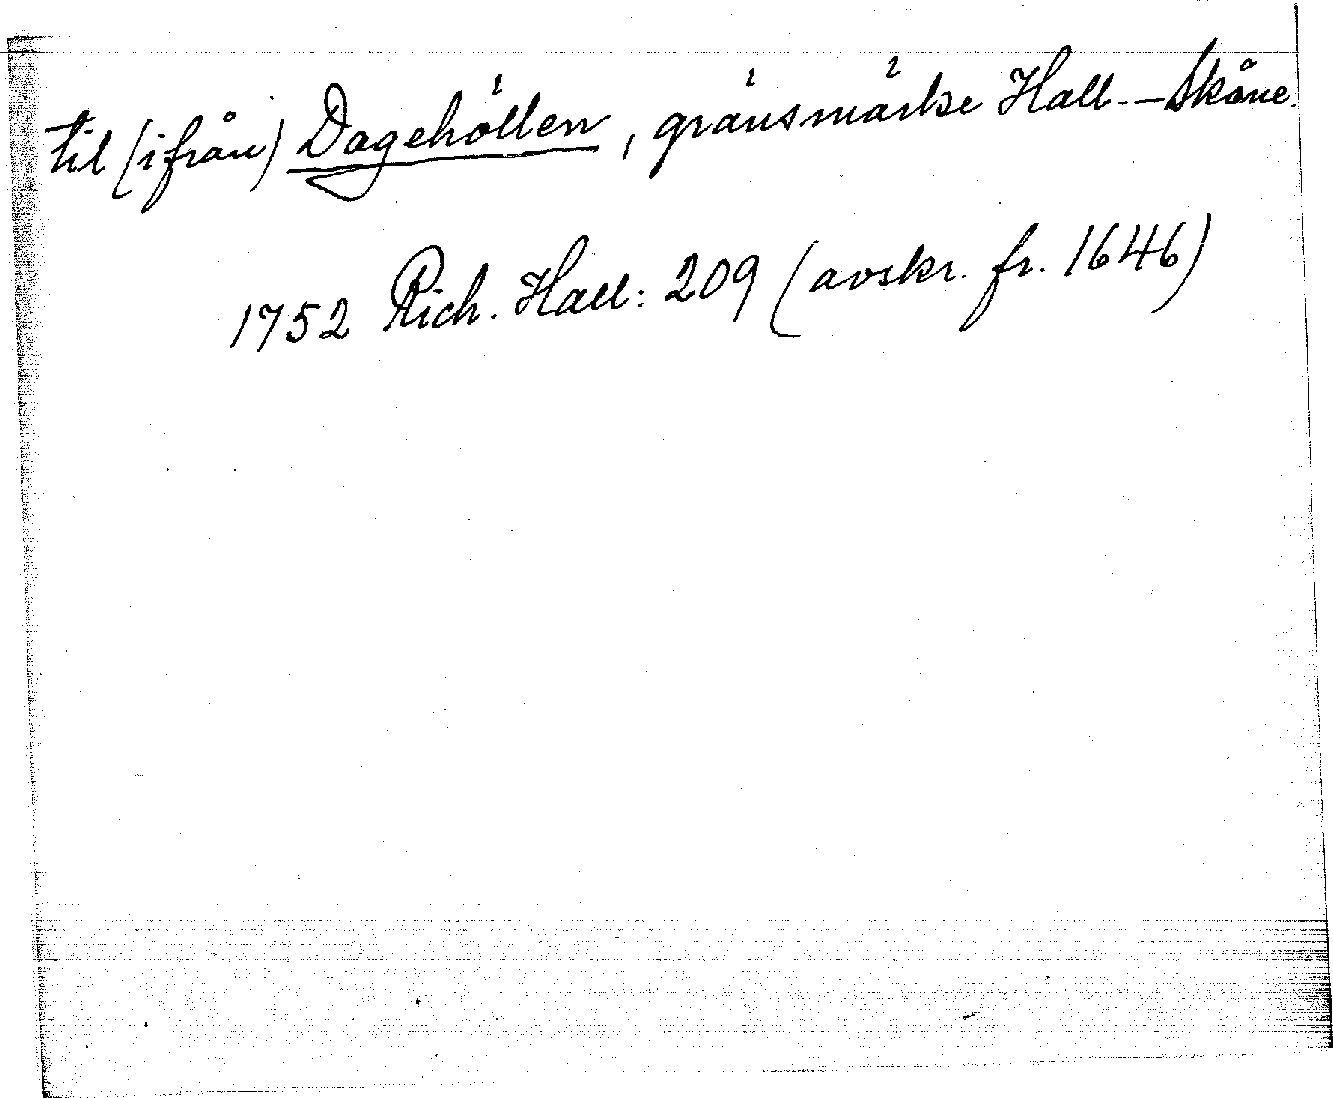 til (ifrån) Dagehöllen, gränsmärke Hall.–Skåne.
1752 Rich. Hall: 209 (avskr. fr. 1646)